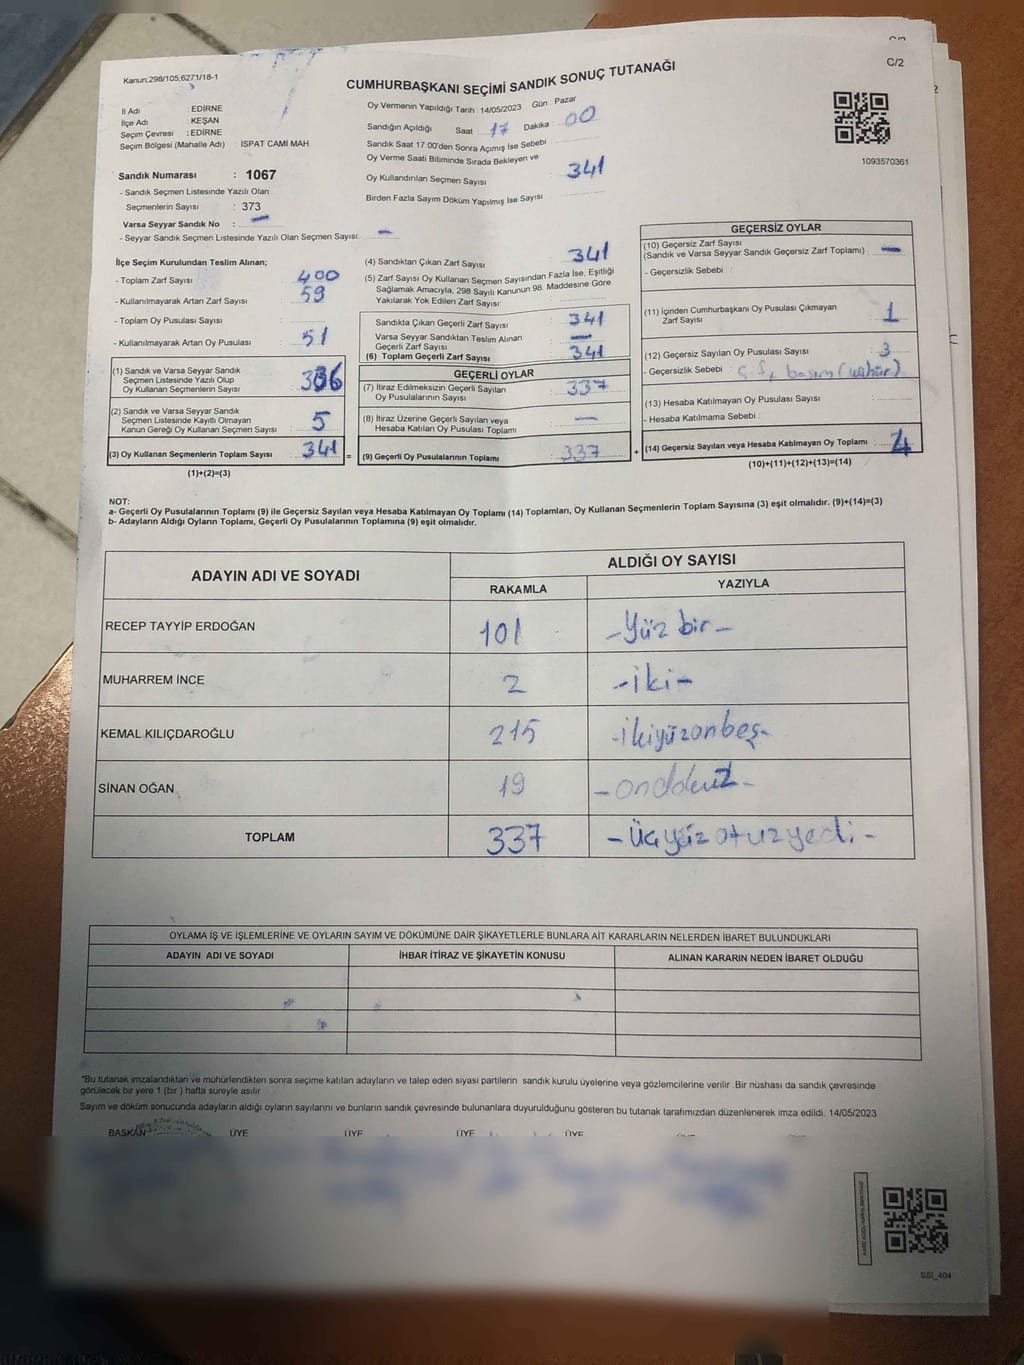 C/2
Kanun:298/105;6271/18-1
CUMHURBAŞKANI SEÇİMİ SANDIK SONUÇ TUTANAĞI
İl Adı : EDİRNE
İlçe Adı : KEŞAN
Seçim Çevresi : EDİRNE
Seçim Bölgesi (Mahalle Adı) : ISPAT CAMİ MAH.
Oy Vermenin Yapıldığı Tarih : 14/05/2023 Gün : Pazar
Sandığın Açıldığı Saat : 17 Dakika : 00
Sandık Saat 17.00'den Sonra Açımış İse Sebebi :
Oy Verme Saati Bitiminde Sırada Bekleyen ve
Oy Kullandırılan Seçmen Sayısı 341
Birden Fazla Sayım Döküm Yapılmış İse Sayısı
1093570361
Sandık Numarası : 1067
- Sandık Seçmen Listesinde Yazılı Olan
Seçmenlerin Sayısı : 373
Varsa Seyyar Sandık No : -
- Seyyar Sandık Seçmen Listesinde Yazılı Olan Seçmen Sayısı: -
İlçe Seçim Kurulundan Teslim Alınan;
- Toplam Zarf Sayısı : 400
- Kullanılmayarak Artan Zarf Sayısı : 59
- Toplam Oy Pusulası Sayısı :
- Kullanılmayarak Artan Oy Pusulası : 51
(1) Sandık ve Varsa Seyyar Sandık
Seçmen Listesinde Yazılı Olup
Oy Kullanan Seçmenlerin Sayısı : 336
(2) Sandık ve Varsa Seyyar Sandık
Seçmen Listesinde Kayıtlı Olmayan
Kanun Gereği Oy Kullanan Seçmen Sayısı : 5
(3) Oy Kullanan Seçmenlerin Toplam Sayısı : 341
(1)+(2)=(3)
(4) Sandıktan Çıkan Zarf Sayısı : 341
(5) Zarf Sayısı Oy Kullanan Seçmen Sayısından Fazla İse, Eşitliği
Sağlamak Amacıyla, 298 Sayılı Kanunun 98. Maddesine Göre
Yakılarak Yok Edilen Zarf Sayısı :
Sandıkta Çıkan Geçerli Zarf Sayısı : 341
Varsa Seyyar Sandıktan Teslim Alınan
Geçerli Zarf Sayısı : -
(6) Toplam Geçerli Zarf Sayısı : 341
GEÇERLİ OYLAR
(7) İtiraz Edilmeksizin Geçerli Sayılan
Oy Pusulalarının Sayısı : 337
(8) İtiraz Üzerine Geçerli Sayılan veya
Hesaba Katılan Oy Pusulası Toplamı : -
= (9) Geçerli Oy Pusulalarının Toplamı : 337 +
GEÇERSİZ OYLAR
(10) Geçersiz Zarf Sayısı
(Sandık ve Varsa Seyyar Sandık Geçersiz Zarf Toplamı) : -
- Geçersizlik Sebebi :
(11) İçinden Cumhurbaşkanı Oy Pusulası Çıkmayan
Zarf Sayısı : 1
(12) Geçersiz Sayılan Oy Pusulası Sayısı : 3
- Geçersizlik Sebebi : Çift basım (mühür)
(13) Hesaba Katılmayan Oy Pusulası Sayısı :
- Hesaba Katılmama Sebebi :
(14) Geçersiz Sayılan veya Hesaba Katılmayan Oy Toplamı : 4
(10)+(11)+(12)+(13)=(14)
NOT:
a- Geçerli Oy Pusulalarının Toplamı (9) ile Geçersiz Sayılan veya Hesaba Katılmayan Oy Toplamı (14) Toplamları, Oy Kullanan Seçmenlerin Toplam Sayısına (3) eşit olmalıdır. (9)+(14)=(3)
b- Adayların Aldığı Oyların Toplamı, Geçerli Oy Pusulalarının Toplamına (9) eşit olmalıdır.
ADAYIN ADI VE SOYADI ALDIĞI OY SAYISI
RAKAMLA YAZIYLA
RECEP TAYYİP ERDOĞAN 101 -Yüz bir-
MUHARREM İNCE 2 -iki-
KEMAL KILIÇDAROĞLU 215 -ikiyüzonbeş-
SİNAN OĞAN 19
TOPLAM 337 -Üçyüz otuz yedi-
OYLAMA İŞ VE İŞLEMLERİNE VE OYLARIN SAYIM VE DÖKÜMÜNE DAİR ŞİKAYETLERLE BUNLARA AİT KARARLARIN NELERDEN İBARET BULUNDUKLARI
ADAYIN ADI VE SOYADI İHBAR İTİRAZ VE ŞİKAYETİN KONUSU ALINAN KARARIN NEDEN İBARET OLDUĞU
*Bu tutanak imzalandıktan ve mühürlendikten sonra seçime katılan adayların ve talep eden siyasi partilerin sandık kurulu üyelerine veya gözlemcilerine verilir .Bir nüshası da sandık çevresinde
görülecek bir yere 1 (bir ) hafta süreyle asılır.
Sayım ve döküm sonucunda adayların aldığı oyların sayılarını ve bunların sandık çevresinde bulunanlara duyurulduğunu gösteren bu tutanak tarafımızdan düzenlenerek imza edildi. 14/05/2023
BAŞKAN ÜYE ÜYE ÜYE ÜYE
SSİ_404